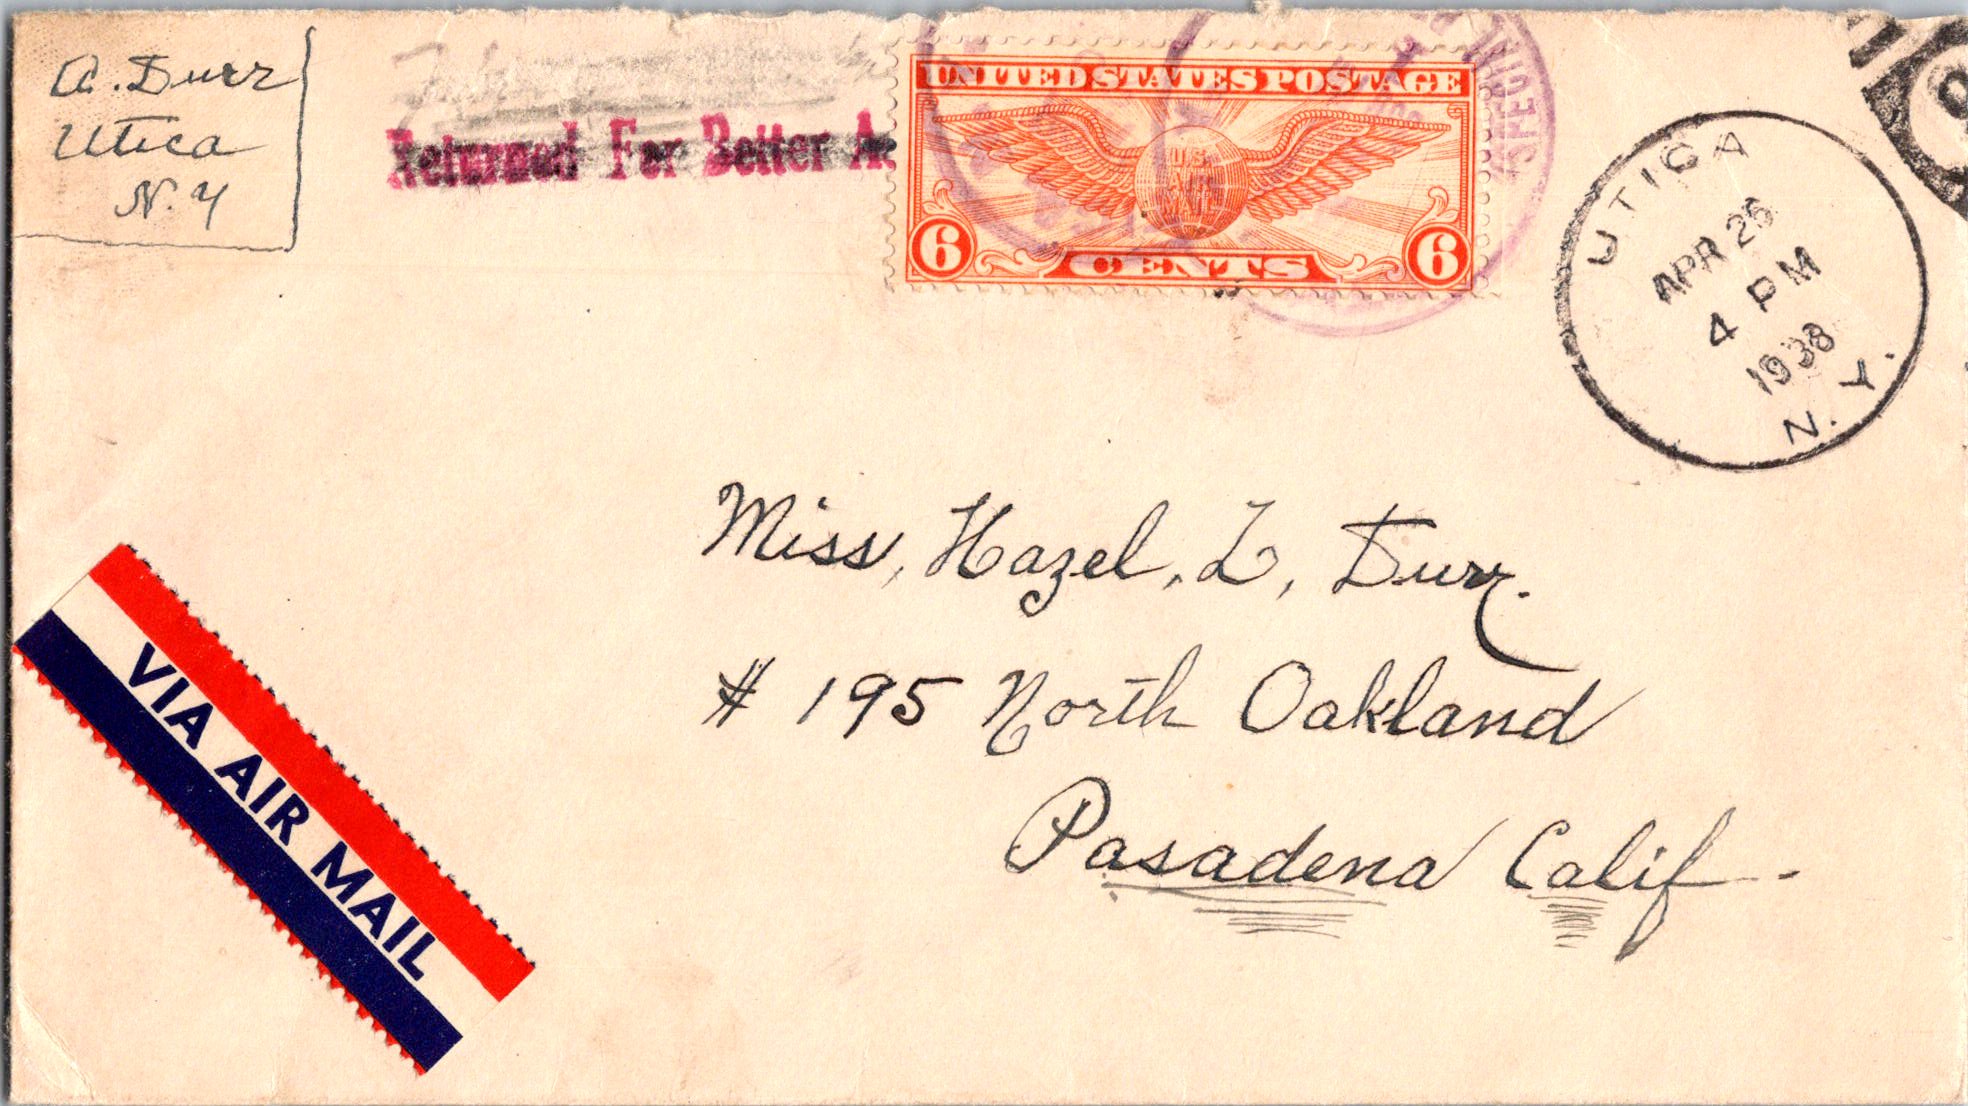 A. Durr
Utica
N.Y
Returned For Better A
UNITED STATES POSTAGE
U.S.
AIR
MAIL
6 CENTS 6
UTICA
APR 26
4 PM
1938
N. Y.
Miss, Hazel. L, Durr.
# 195 North Oakland
Pasadena Calif -
VIA AIR MAIL